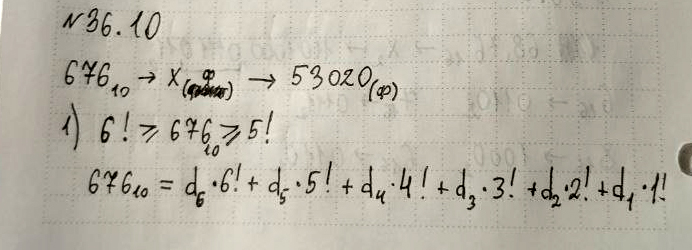 №36.10
676₁₀ → X₍ф₎ → 53020₍ф₎
1) 6! ⩾ 676₁₀ ⩾ 5!
676₁₀ = d₆·6! + d₅·5! + d₄·4! + d₃·3! + d₂·2! + d₁·1!